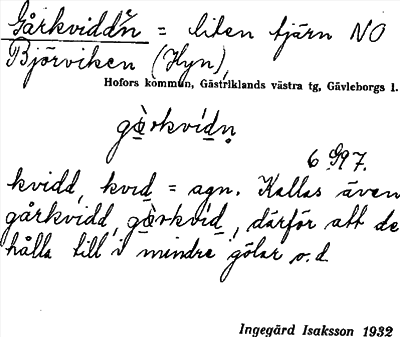 Gårkviddn = liten tjärn NO
Björviken (Hyn),
Hofors kommun, Gästriklands västra tg, Gävleborgs l.
gὰrkvídn̥
6 G97.
kvidd, kvid = agn. Kallas även
gårkvidd, gὰrkvíd, därför att de
hålla till i mindre gölar o.d.
Ingegärd Isaksson 1932